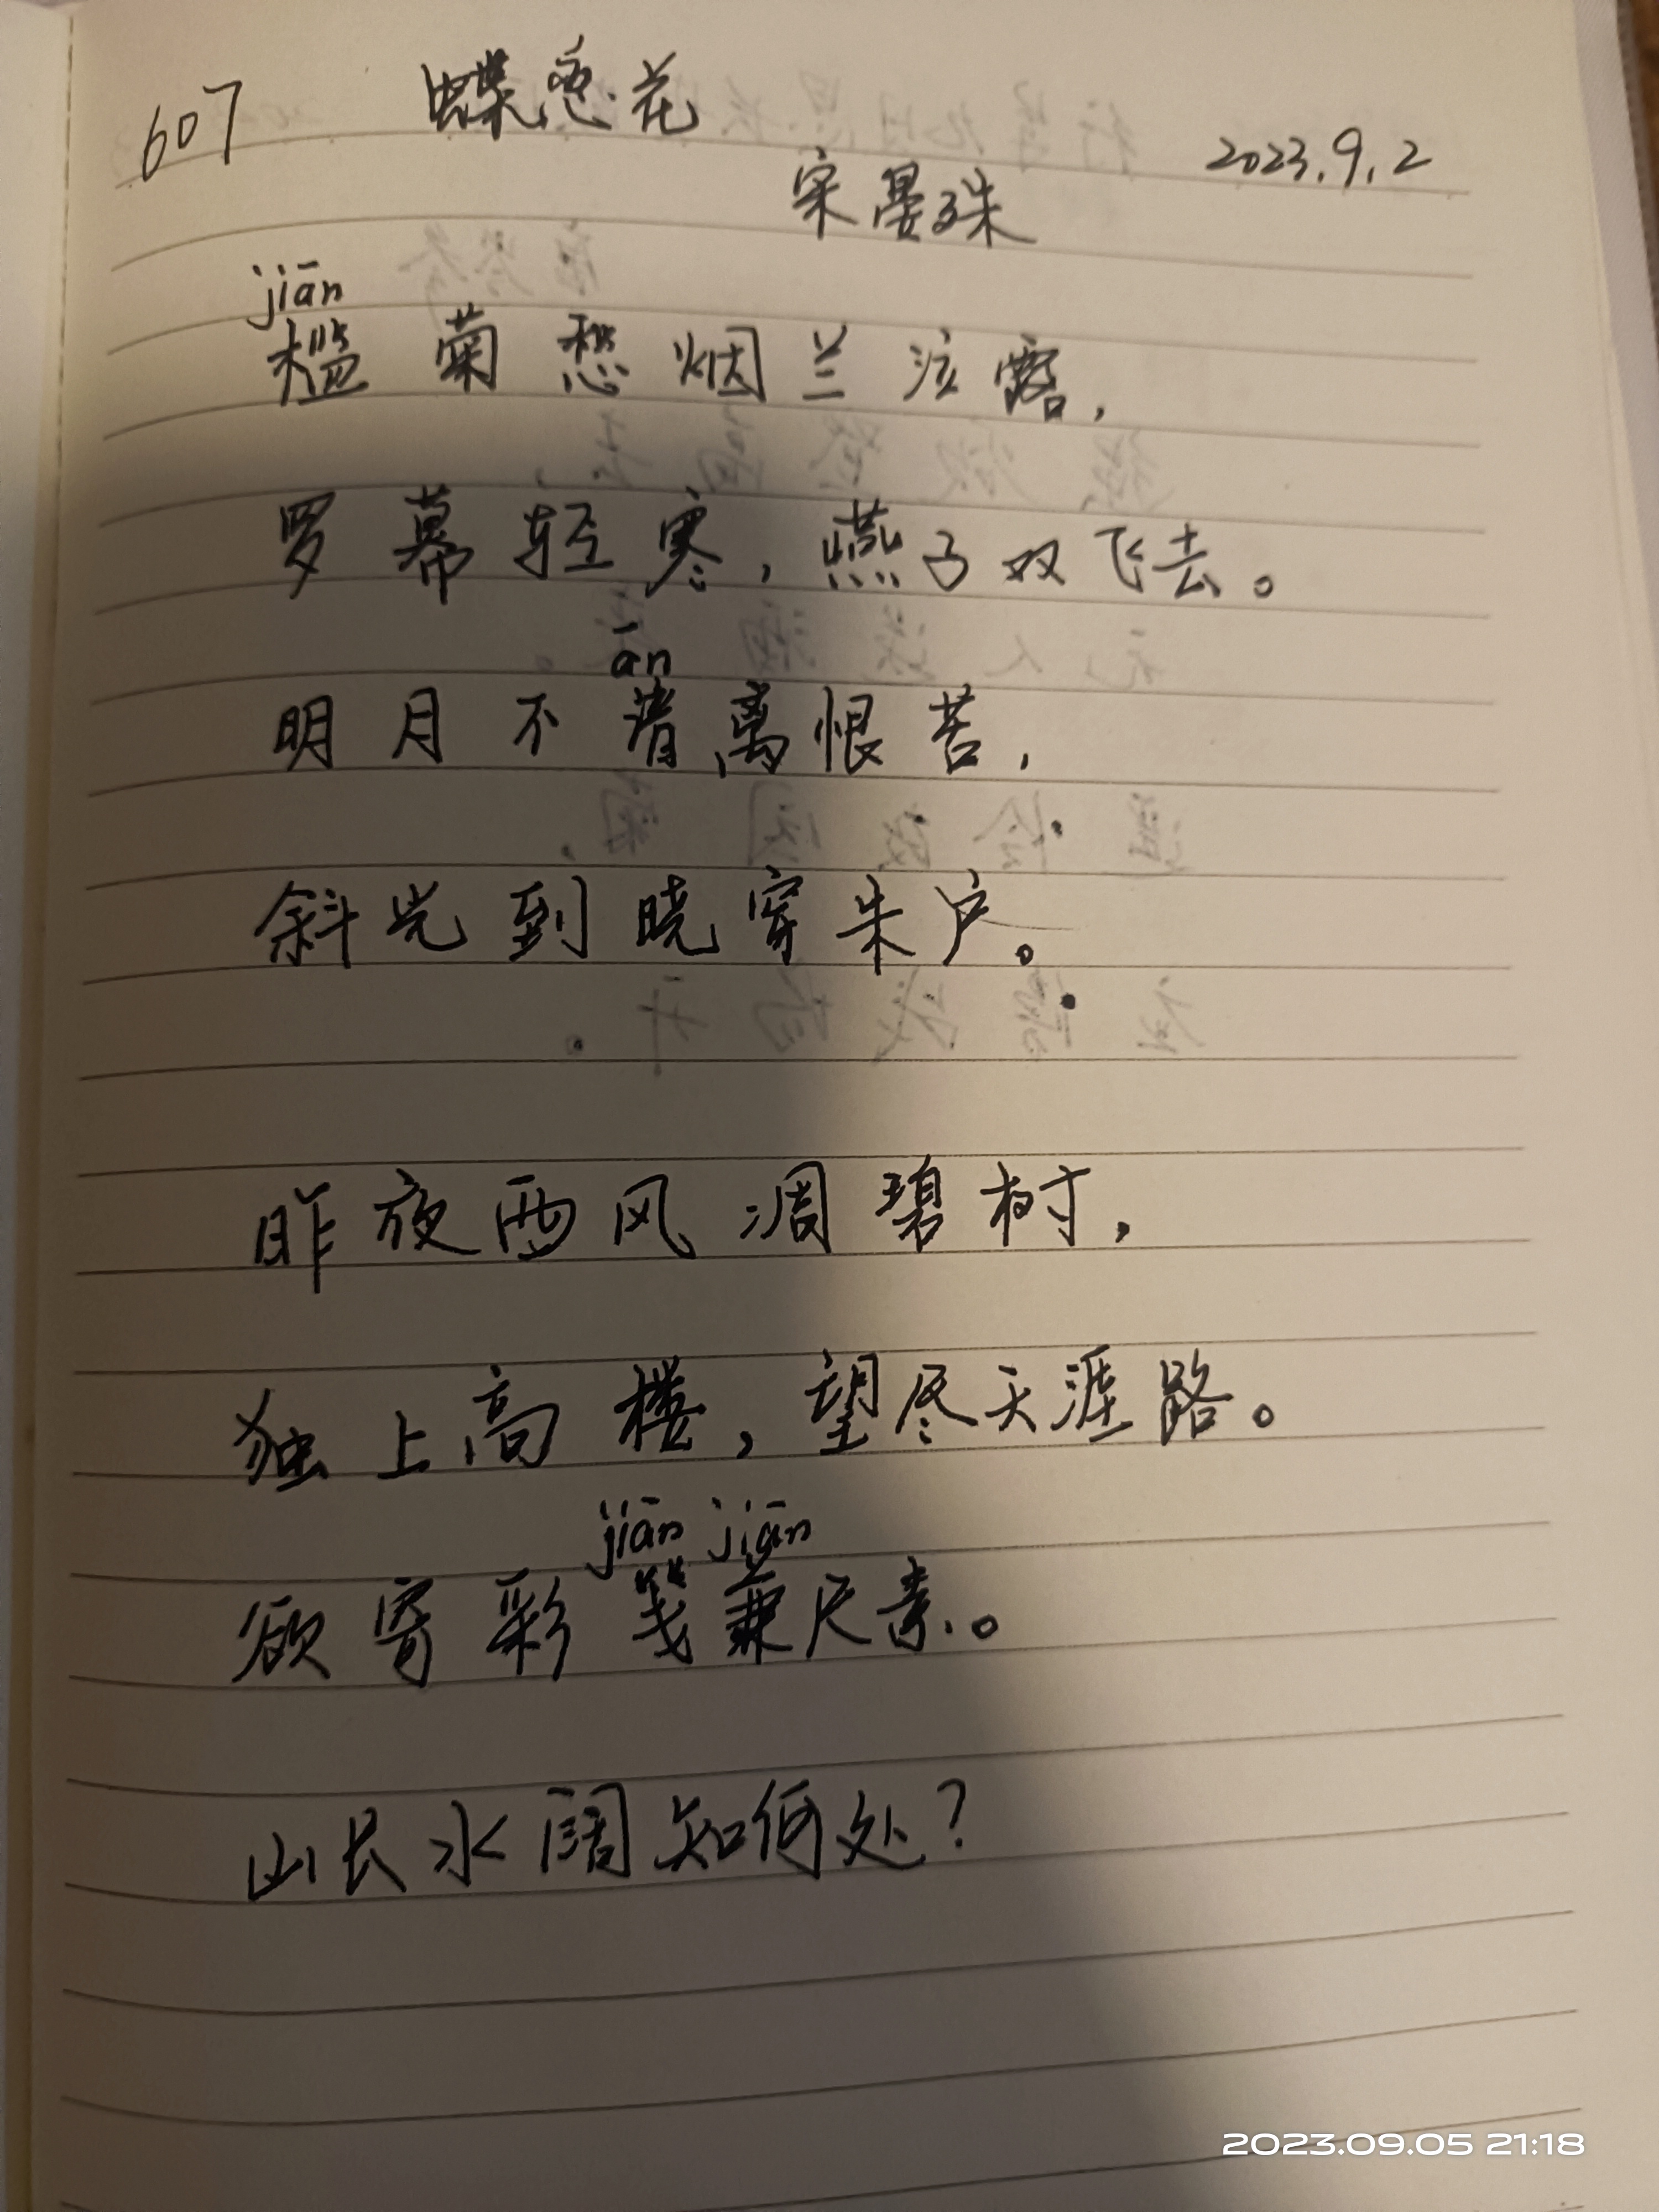 607 蝶恋花
2023.9.2
宋晏殊
jiān
槛菊愁烟兰泣露，
罗幕轻寒，燕子双飞去。
ān
明月不谙离恨苦，
斜光到晓穿朱户。
昨夜西风凋碧树，
独上高楼，望尽天涯路。
jiān jiān
欲寄彩笺兼尺素。
山长水阔知何处？
2023.09.05 21:18